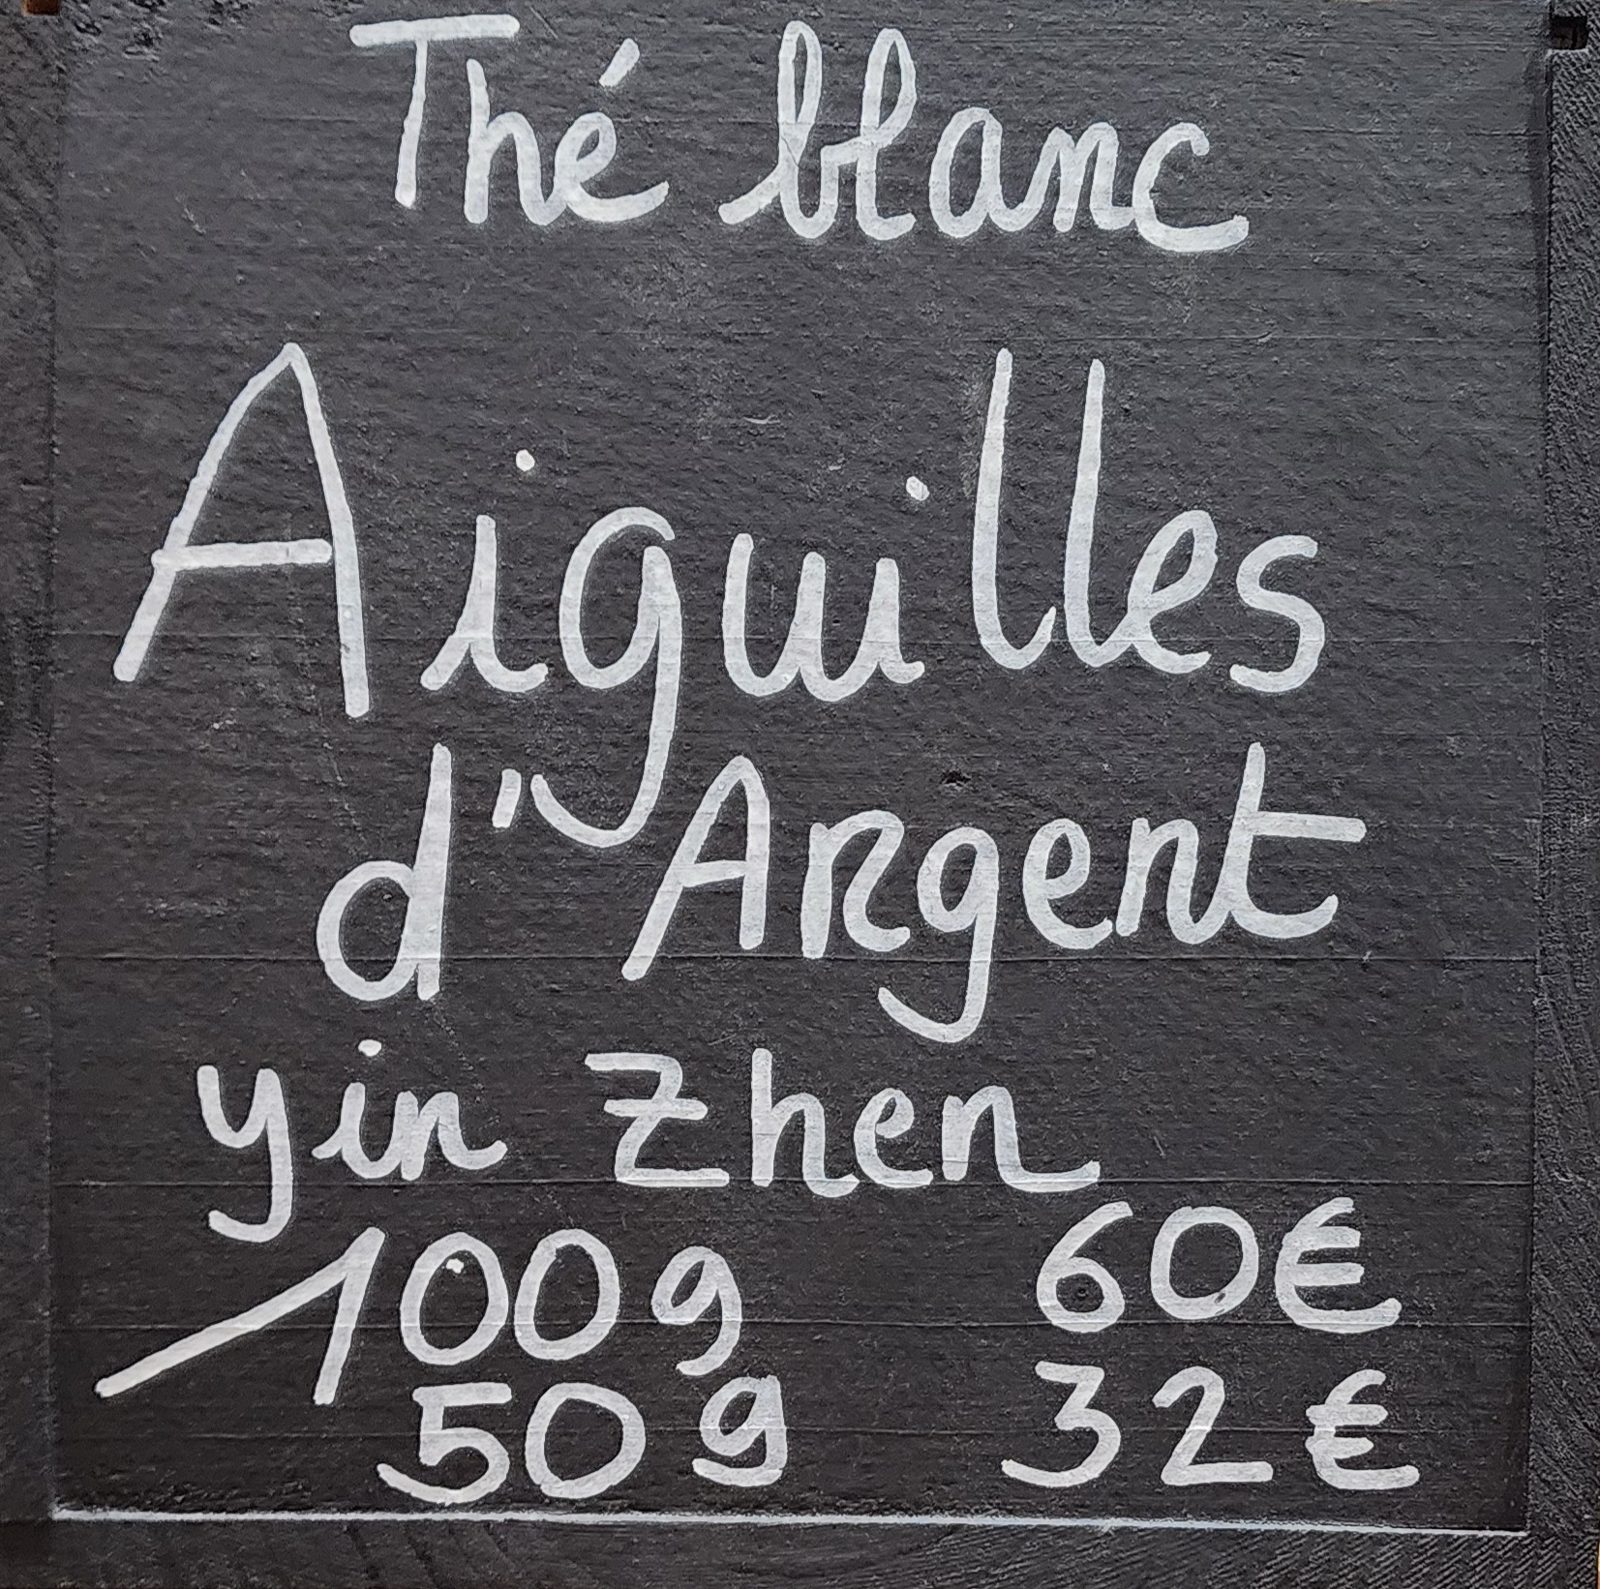 Thé blanc
Aiguilles
d'Argent
yin Zhen
100g 60€
50g 32€